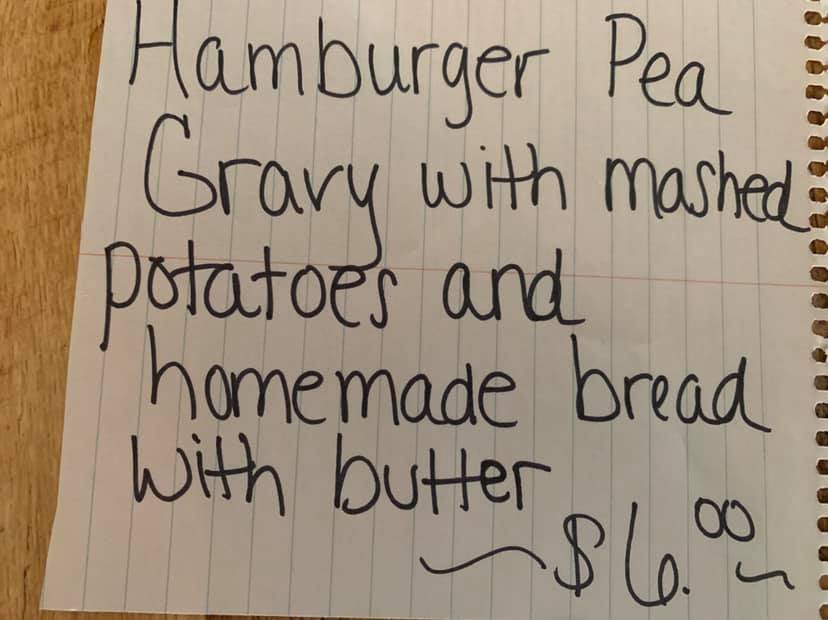 Hamburger Pea
Gravy with mashed
potatoes and
homemade bread
with butter
~$6.00~